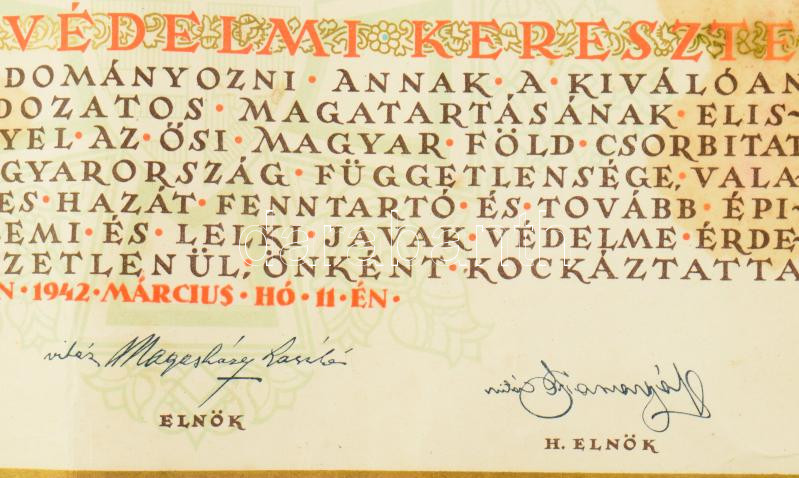 VÉDELMI KERESZTE
DOMÁNYOZNI · ANNAK · A · KIVÁLÓAN
DOZATOS · MAGATARTÁSÁNAK · ELIS-
YEL · AZ · ŐSI · MAGYAR · FÖLD · CSORBITAT
GYARORSZÁG · FÜGGETLENSÉGE, VALA-
ES · HAZÁT · FENNTARTÓ · ÉS · TOVÁBB · ÉPI-
EMI · ÉS · LELKI · JAVAK · VÉDELME · ÉRDE-
ZETLENÜL, ÖNKÉNT · KOCKÁZTATTA
N · 1942 · MÁRCIUS · HÓ · 11 · ÉN ·
vitéz Magasházy László
ELNÖK
vitéz
H. ELNÖK
darabanth